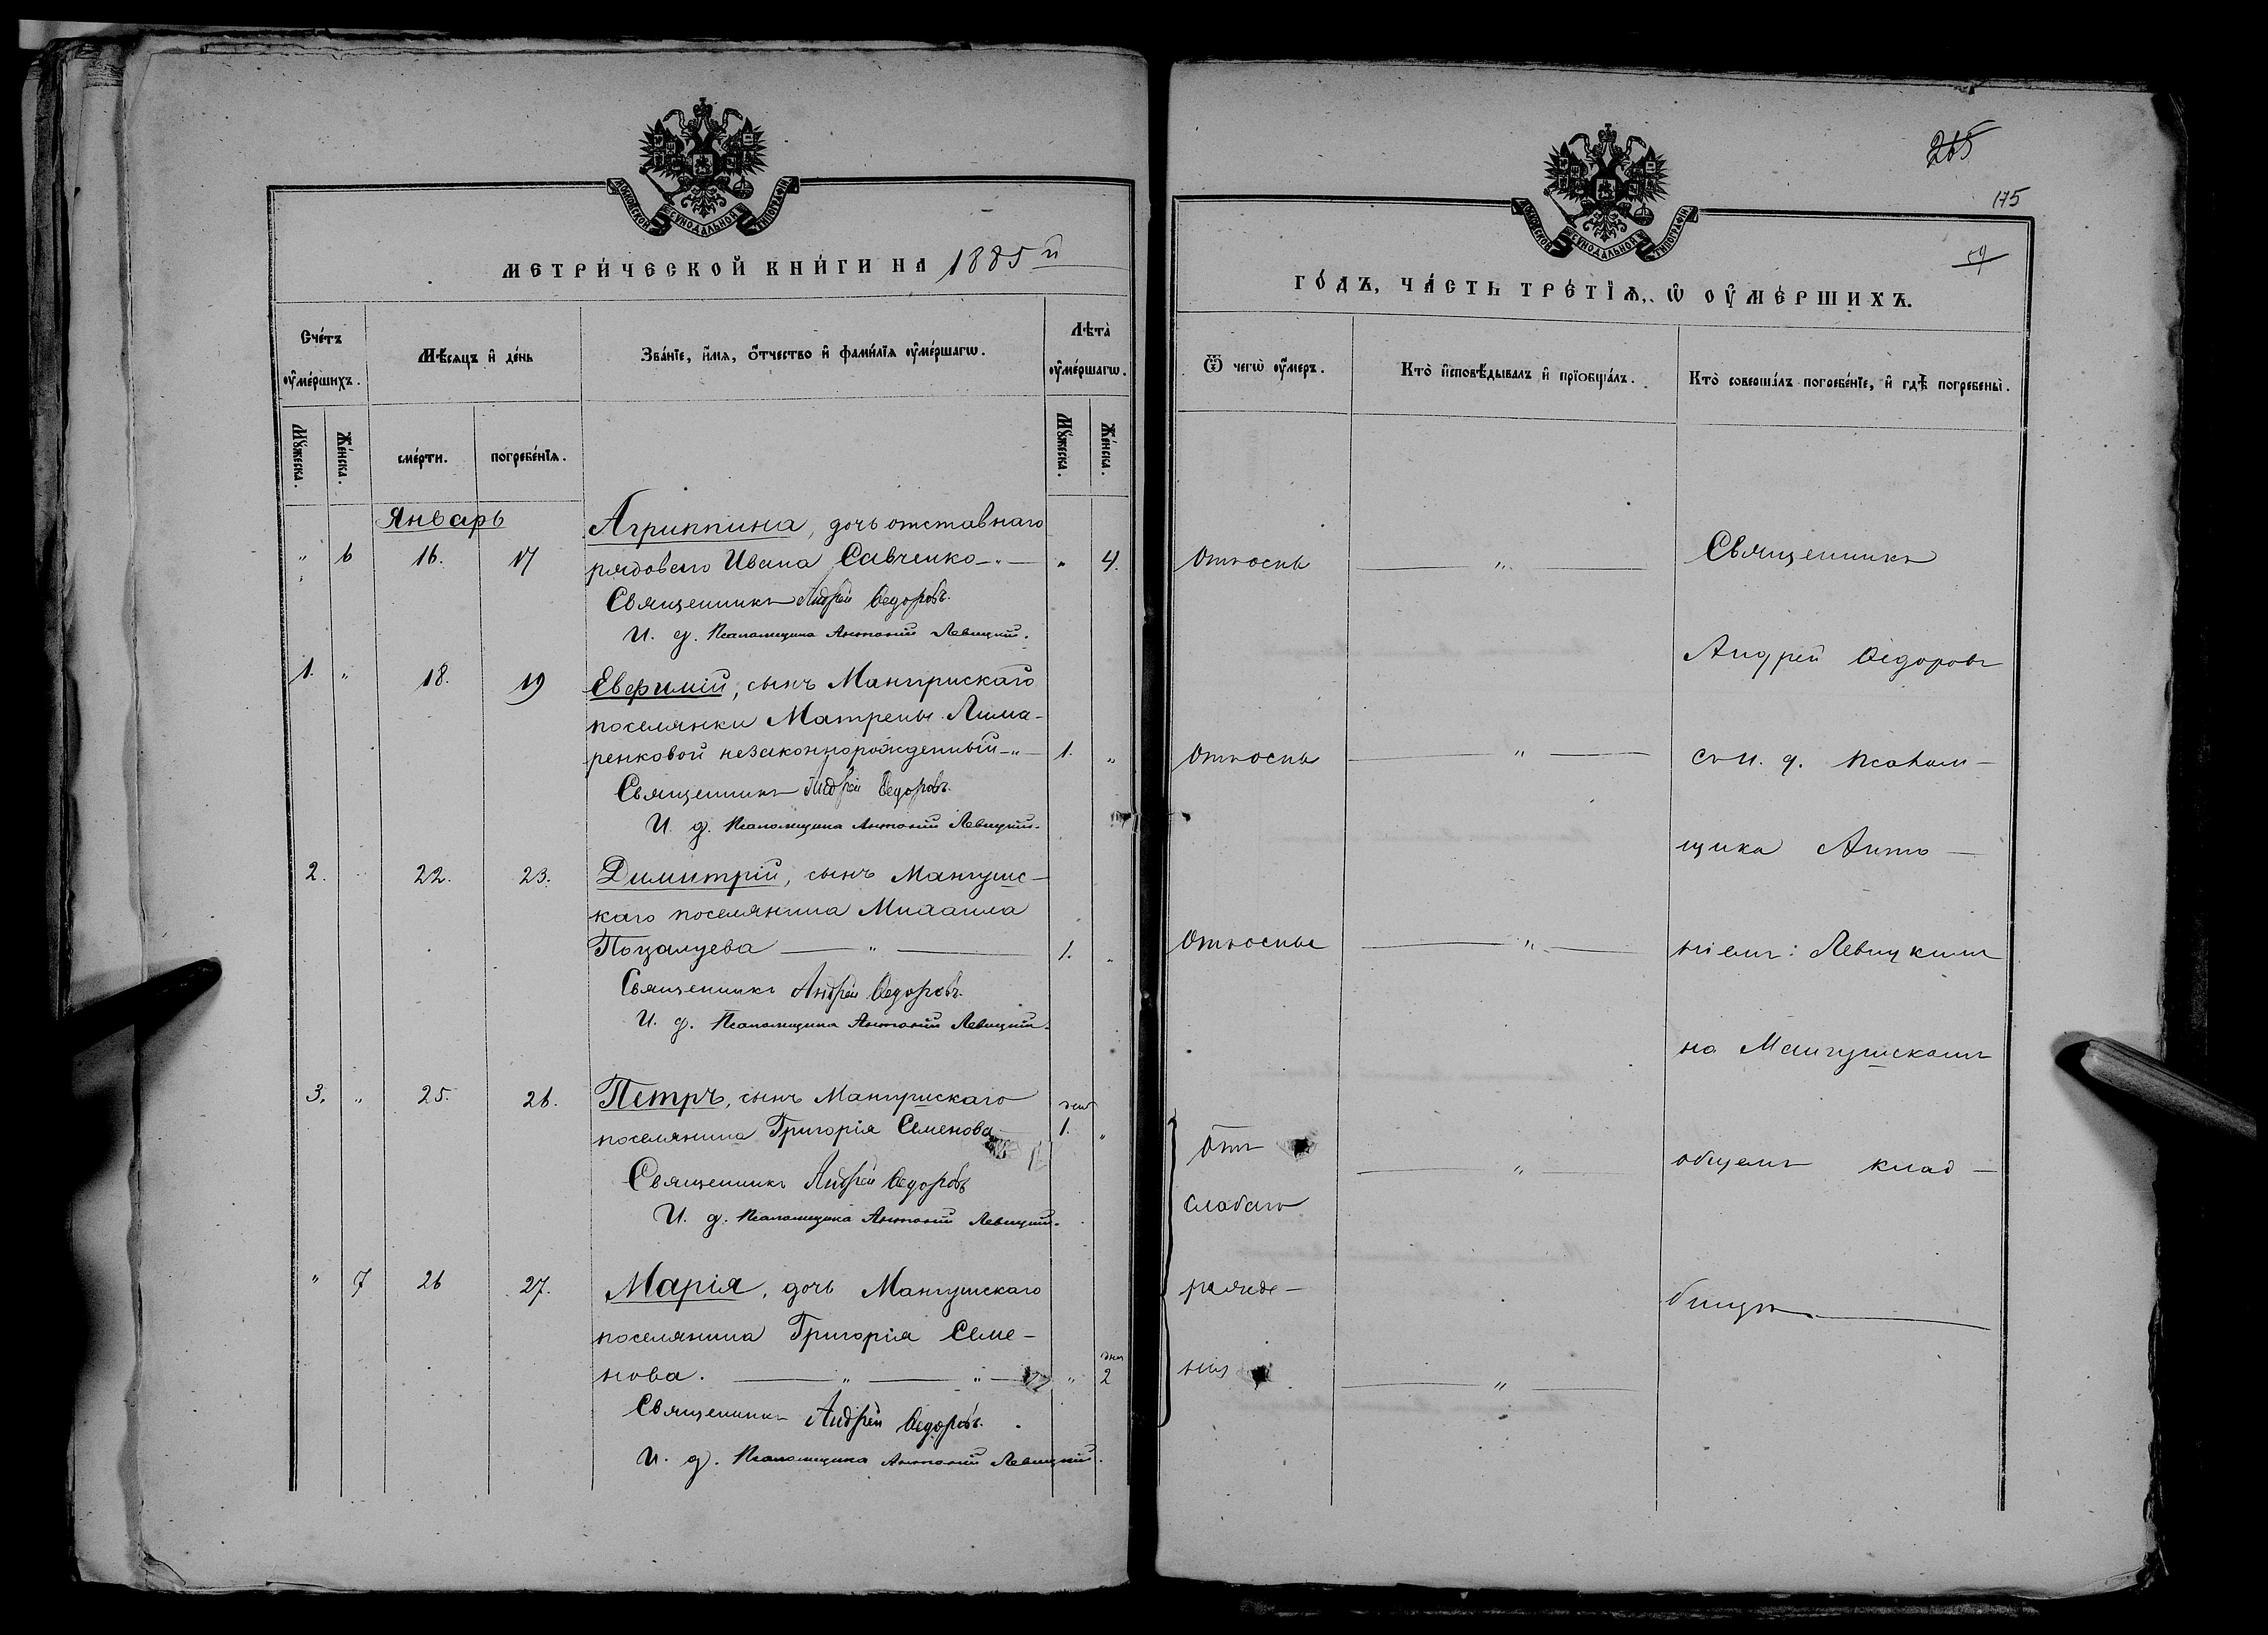 МОСКОВСКОЙ СѴНОДАЛЬНОЙ ТИПОГРАФІИ
МЕТРИ́ЧЕСКОЙ КНИ́ГИ НА 1885й
Счётъ ᲂу҆ме́ршихъ.
Мѣ́сяцъ и҆ де́нь
Зва́нїе, и҆́мя, ѻ҆́тчество и҆ фами́лїя ᲂу҆ме́ршагѡ.
Лѣта̀ ᲂу҆ме́ршагѡ.
Мꙋ́жеска.
Же́нска.
сме́рти.
погребе́нїя.
Мꙋ́жеска.
Же́нска.
Январь
Агриппина, дочь отставнаго
" 6 16. 17 рядоваго Ивана Савченко " 4.
Священникъ Андрей Ѳедоровъ.
И. д. Псаломщика Антоній Левицкій.
1. " 18. 19 Евфимій, сынъ Мангушскаго
поселянки Матрены Лима-
ренковой незаконнорожденный 1. "
Священникъ Андрей Ѳедоровъ.
И. д. Псаломщика Антоній Левицкій.
2. 22. 23. Димитрій, сынъ Мангушс-
каго поселянина Михаила
Поцалуева " 1. "
Священникъ Андрей Ѳедоровъ.
И. д. Псаломщика Антоній Левицкій.
3. " 25. 26. Петръ, сынъ Мангушскаго ден
поселянина Григорія Семенова 1. "
Священникъ Андрей Ѳедоровъ
И. д. Псаломщика Антоній Левицкій.
" 7 26 27. Марія, дочь Мангушскаго
поселянина Григорія Семе-
дня
нова. " " " 2
Священникъ Андрей Ѳедоровъ.
И. д. Псаломщика Антоній Левицкій.
265
175
МОСКОВСКОЙ СѴНОДАЛЬНОЙ ТИПОГРАФІИ
59
ГО́ДЪ, ЧА́СТЬ ТРЕ́ТЇѦ, Ѡ҆ ОУ҆МЕ́РШИХЪ.
Ѿ чегѡ̀ ᲂу҆́меръ.
Кто̀ и҆сповѣ́дывалъ и҆ прїобща́лъ.
Кто̀ соверша́лъ погребе́нїе, и҆ гдѣ̀ погребены̀.
Отъ оспы " Священникъ
Андрей Ѳедоровъ
Отъ оспы " съ и. д. псалом-
щика Анто-
Отъ оспы " ніемъ Левицкимъ
на Мангушскомъ
Отъ " общемъ клад-
слабаго
рожде- бищѣ.
нія "